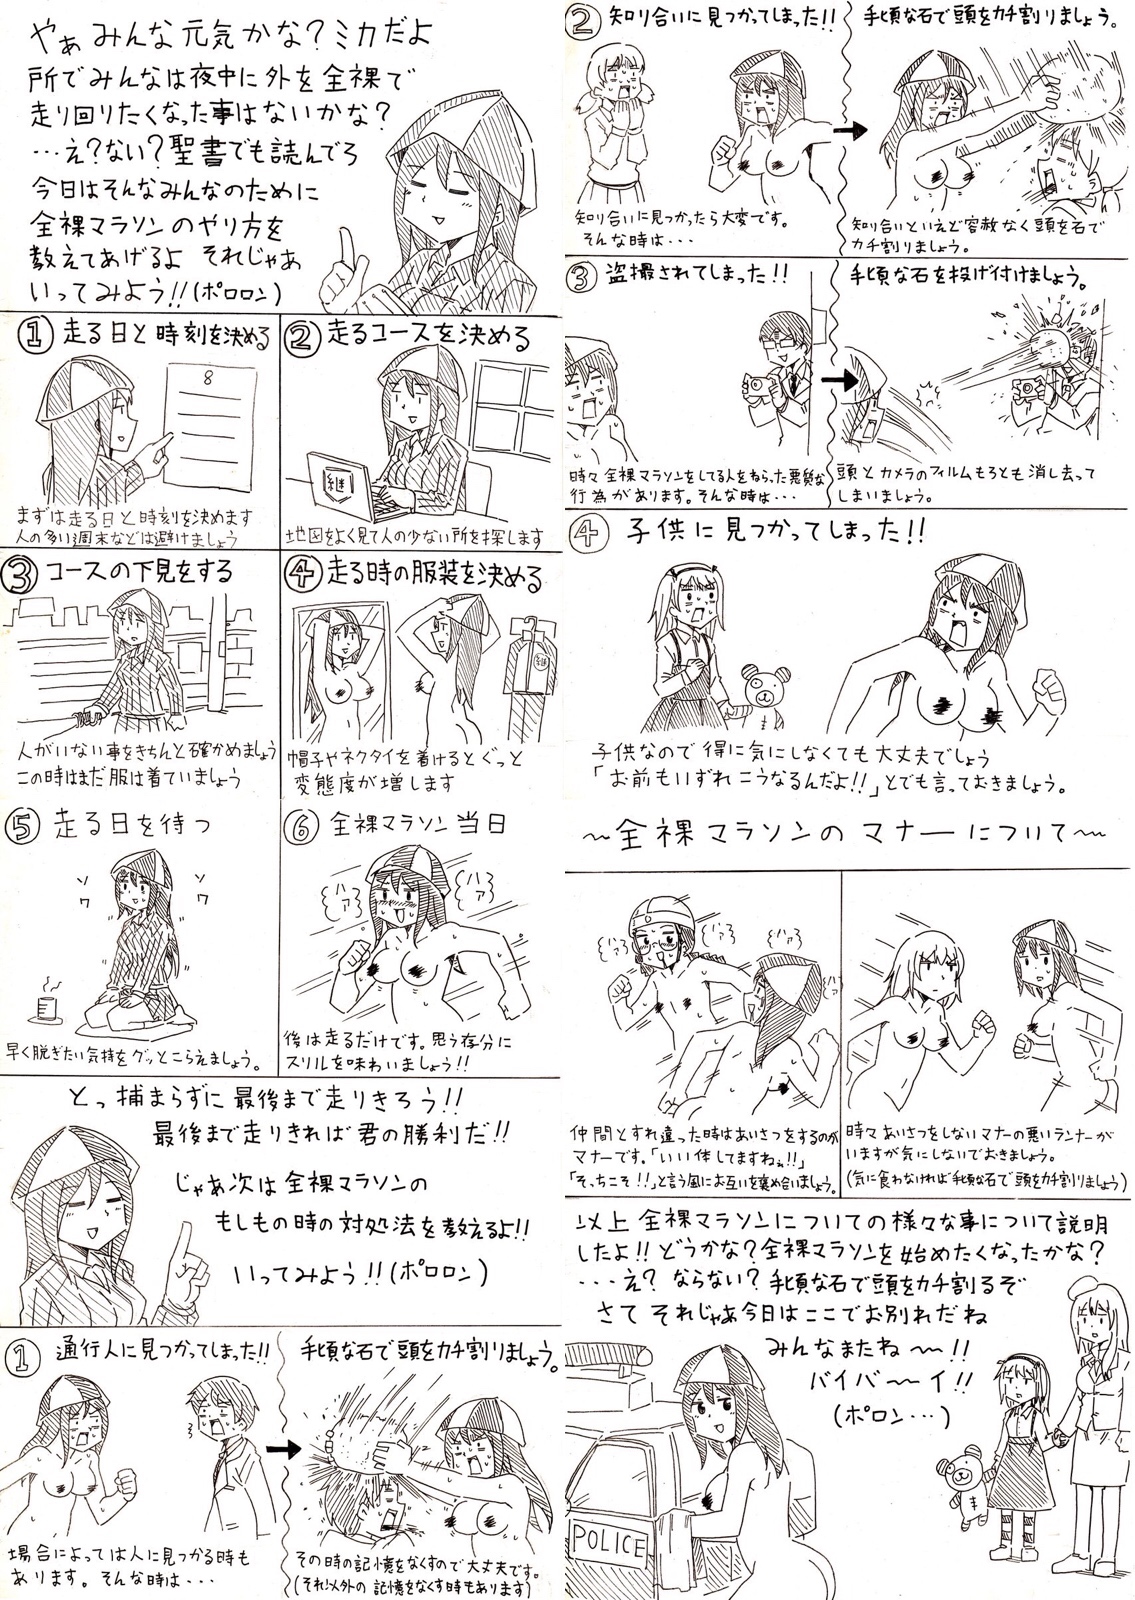 やぁみんな元気かな?ミカだよ
所でみんなは夜中に外を全裸で
走り回りたくなった事はないかな?
…え?ない?聖書でも読んでろ
今日はそんなみんなのために
全裸マラソンのやり方を
教えてあげるよ それじゃあ
いってみよう!!(ポロロン)
① 走る日と時刻を決める
8
まずは走る日と時刻を決めます
人の多い週末などは避けましょう
② 走るコースを決める
継
地図をよく見て人の少ない所を探します
③ コースの下見をする
人がいない事をきちんと確かめましょう
この時はまだ服は着ていましょう
④ 走る時の服装を決める
継
帽子やネクタイを着けるとぐっと
変態度が増します
⑤ 走る日を待つ
ソワ
ソワ
早く脱ぎたい気持をグッとこらえましょう。
⑥ 全裸マラソン当日
ハァ
ハァ
後は走るだけです。思う存分に
スリルを味わいましょう!!
とっ捕まらずに最後まで走りきろう!!
最後まで走りきれば君の勝利だ!!
じゃあ次は全裸マラソンの
もしもの時の対処法を教えるよ!!
いってみよう!!(ポロロン)
① 通行人に見つかってしまった!!
場合によっては人に見つかる時も
あります。そんな時は・・・
手頃な石で頭をカチ割りましょう。
その時の記憶をなくすので大丈夫です。
(それ以外の記憶をなくす時もあります)
② 知り合いに見つかってしまった!!
知り合いに見つかったら大変です。
そんな時は・・・
手頃な石で頭をカチ割りましょう。
知り合いといえど容赦なく頭を石で
カチ割りましょう。
③ 盗撮されてしまった!!
時々全裸マラソンをしてる人をねらった悪質な
行為があります。そんな時は・・・
手頃な石を投げ付けましょう。
頭とカメラのフィルムもろとも消し去って
しまいましょう。
④ 子供に見つかってしまった!!
子供なので得に気にしなくても大丈夫でしょう
「お前もいずれこうなるんだよ!!」とでも言っておきましょう。
〜全裸マラソンのマナーについて〜
ハァ
ハァ
ハァ
ハァ
仲間とすれ違った時はあいさつをするのが
マナーです。「いい体してますねぇ!!」
「そっちこそ!!」と言う風にお互いを褒め合いましょう。
時々あいさつをしないマナーの悪いランナーが
いますが気にしないでおきましょう。
(気に食わなければ手頃な石で頭をカチ割りましょう)
以上全裸マラソンについての様々な事について説明
したよ!!どうかな?全裸マラソンを始めたくなったかな?
・・・え?ならない?手頃な石で頭をカチ割るぞ
さてそれじゃあ今日はここでお別れだね
みんなまたね〜!!
バイバ〜イ!!
(ポロン…)
POLICE